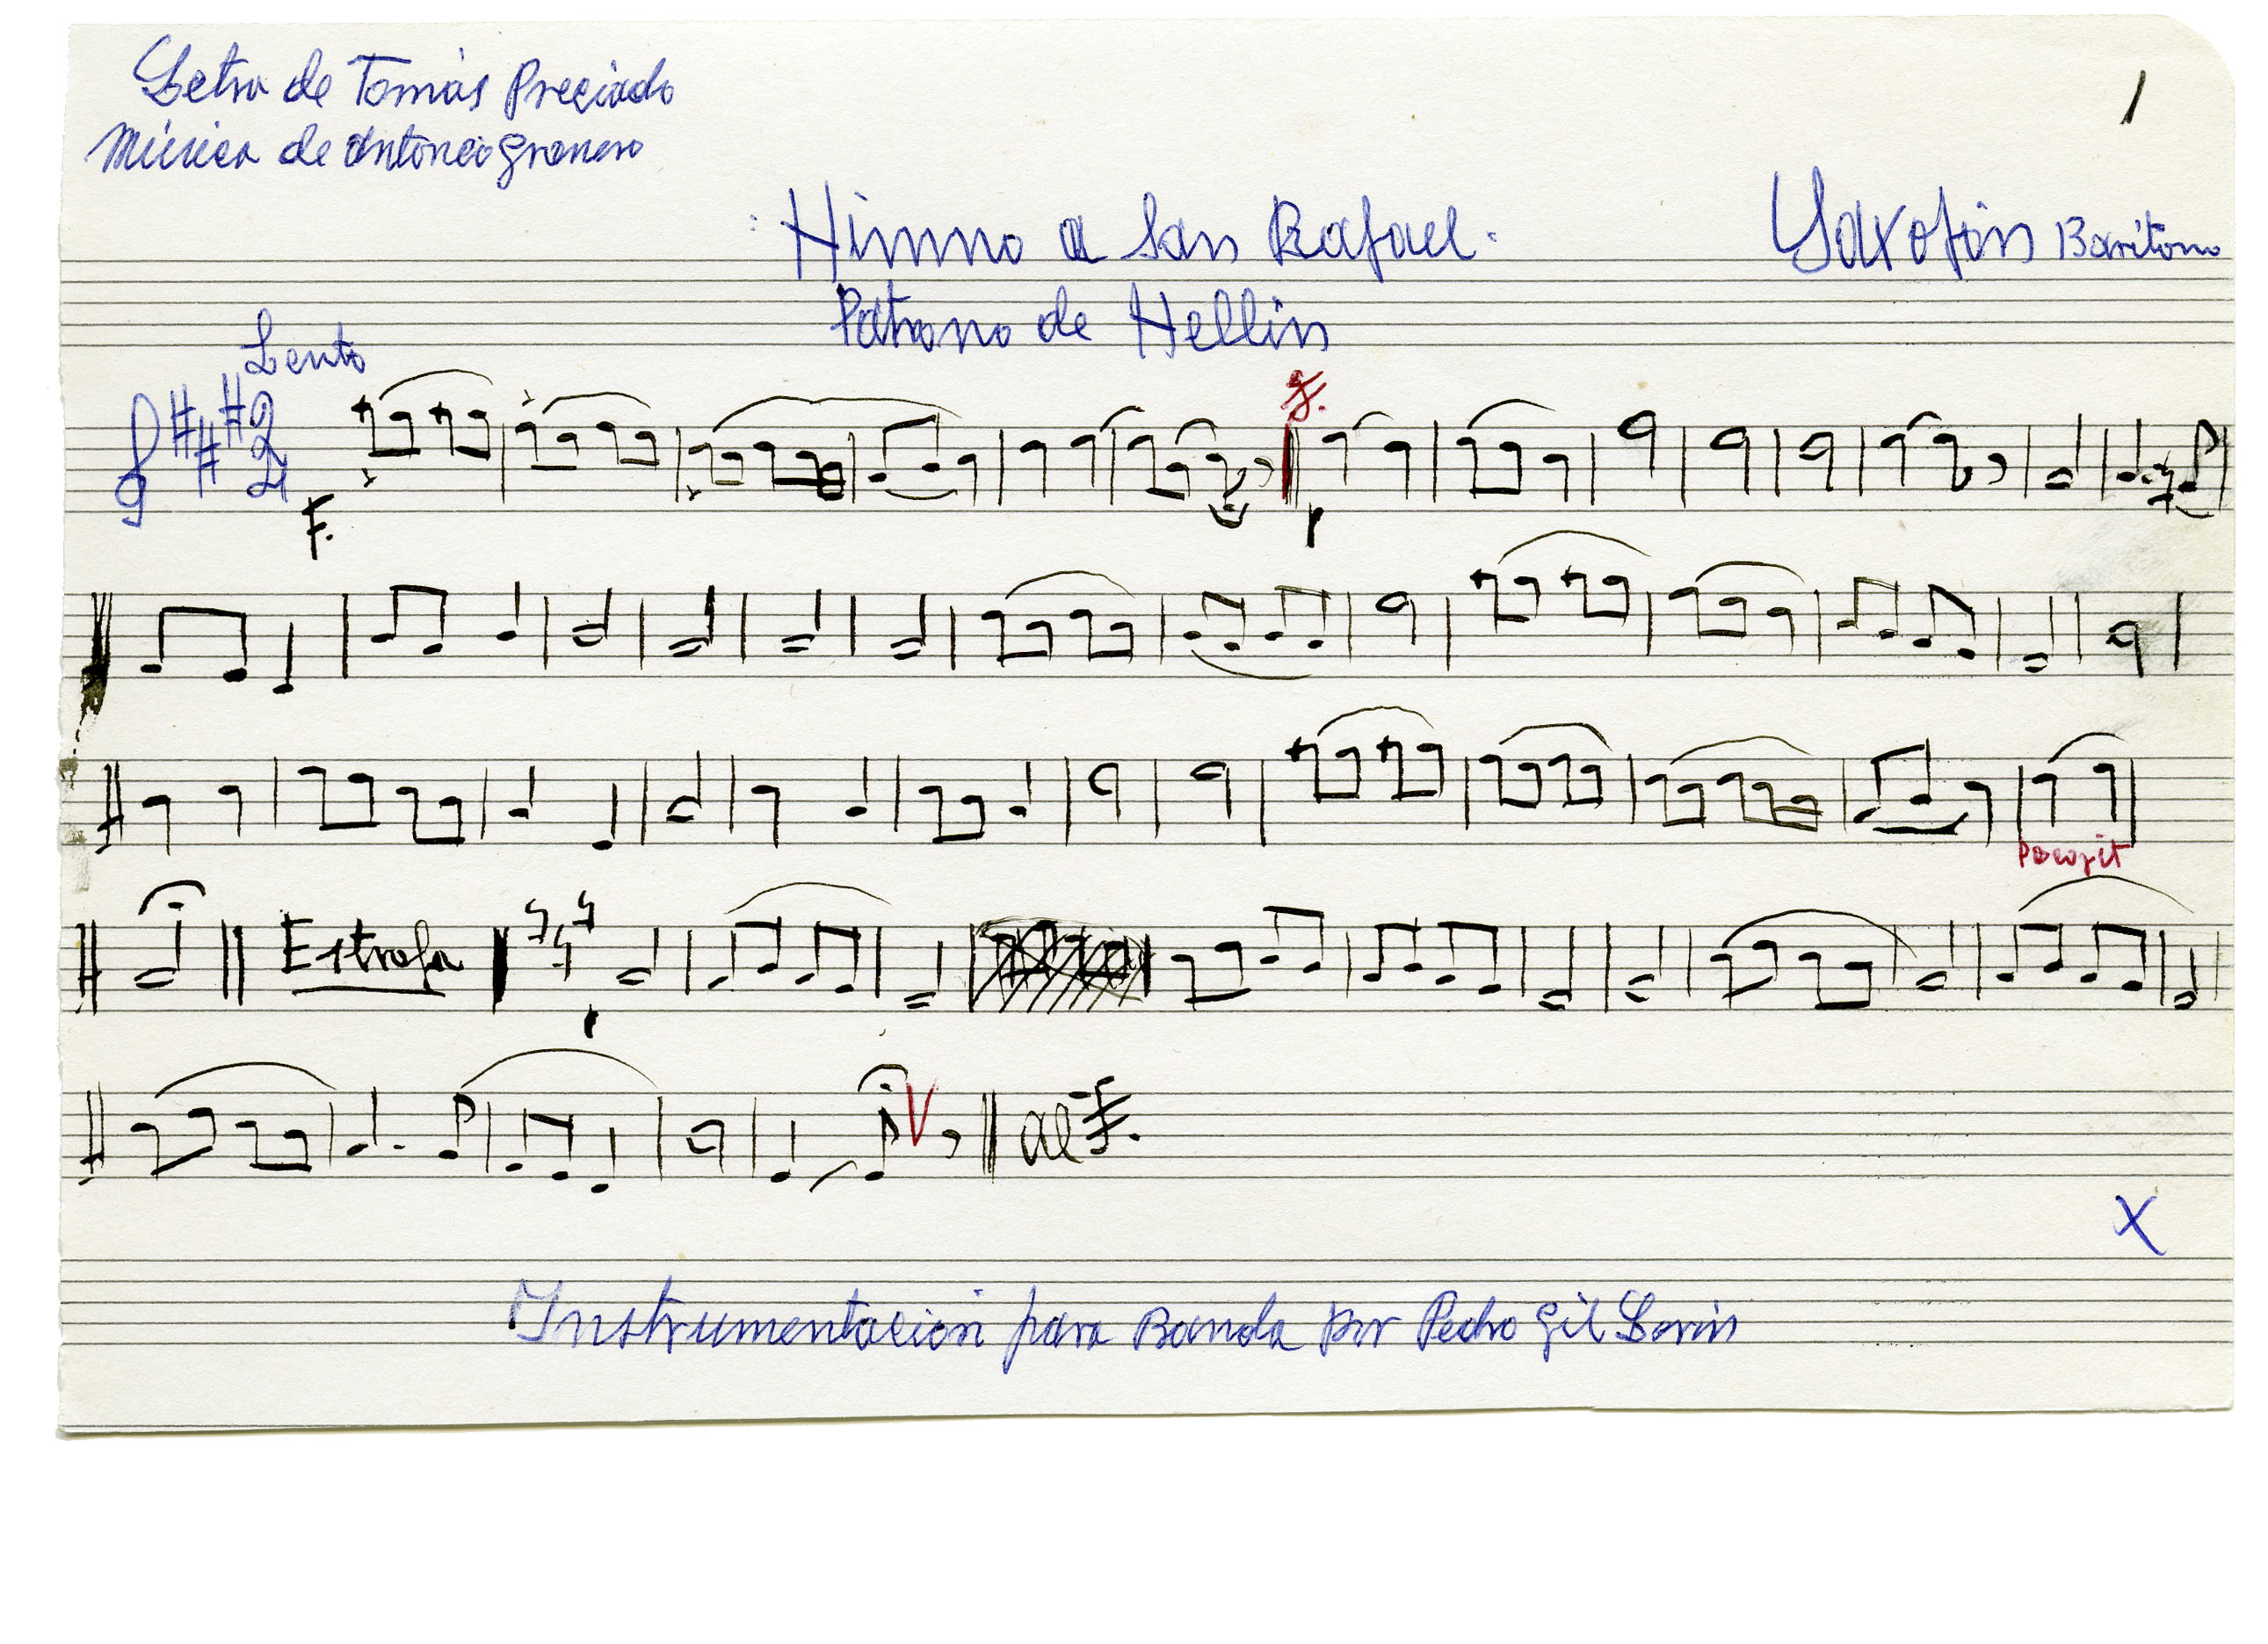 Letra de Tomás Preciado
Música de Antonio Granero
1
Himno a San Rafael.
Saxofón Barítono
Patrono de Hellín
Lento
2
4
F.
p
Poco rit
Estrofa
p
al
X
Instrumentación para Banda por Pedro Gil Lerín